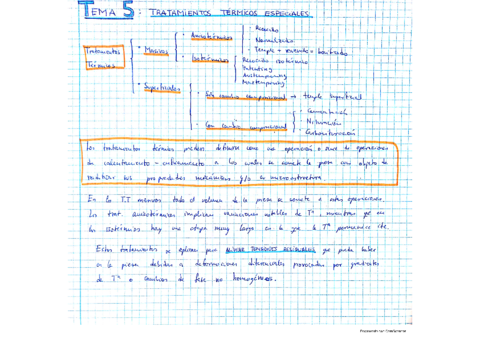 TEMA 5: TRATAMIENTOS TÉRMICOS ESPECIALES
Tratamientos Térmicos
· Másicos
· Anisotérmicos
· Recocido
· Normalizado
· Temple + revenido
· Isotérmicos
Recocido isotérmico
Patenting
Austempering
Martempering
· Superficiales
· Sin cambio composicional → temple superficial
· Con cambio composicional
· Cementación
· Nitruración
· Carbonitruración
Los tratamientos térmicos pueden definirse como una operación o serie de operaciones
de calentamiento - enfriamiento a los cuales se somete la pieza con objeto de
modificar sus propiedades mecánicas y/o su microestructura.
En los TT másicos todo el volumen de la pieza se somete a estas operaciones.
Los trat. anisotérmicos implican variaciones notables de Tª, mientras que en
los isotérmicos hay una etapa muy larga en la que la Tª permanece cte.
Estos tratamientos se aplican para ALIVIAR TENSIONES RESIDUALES que pueda haber
en la pieza debidas a deformaciones diferenciales provocadas por gradientes
de Tª o cambios de fase no homogéneos.